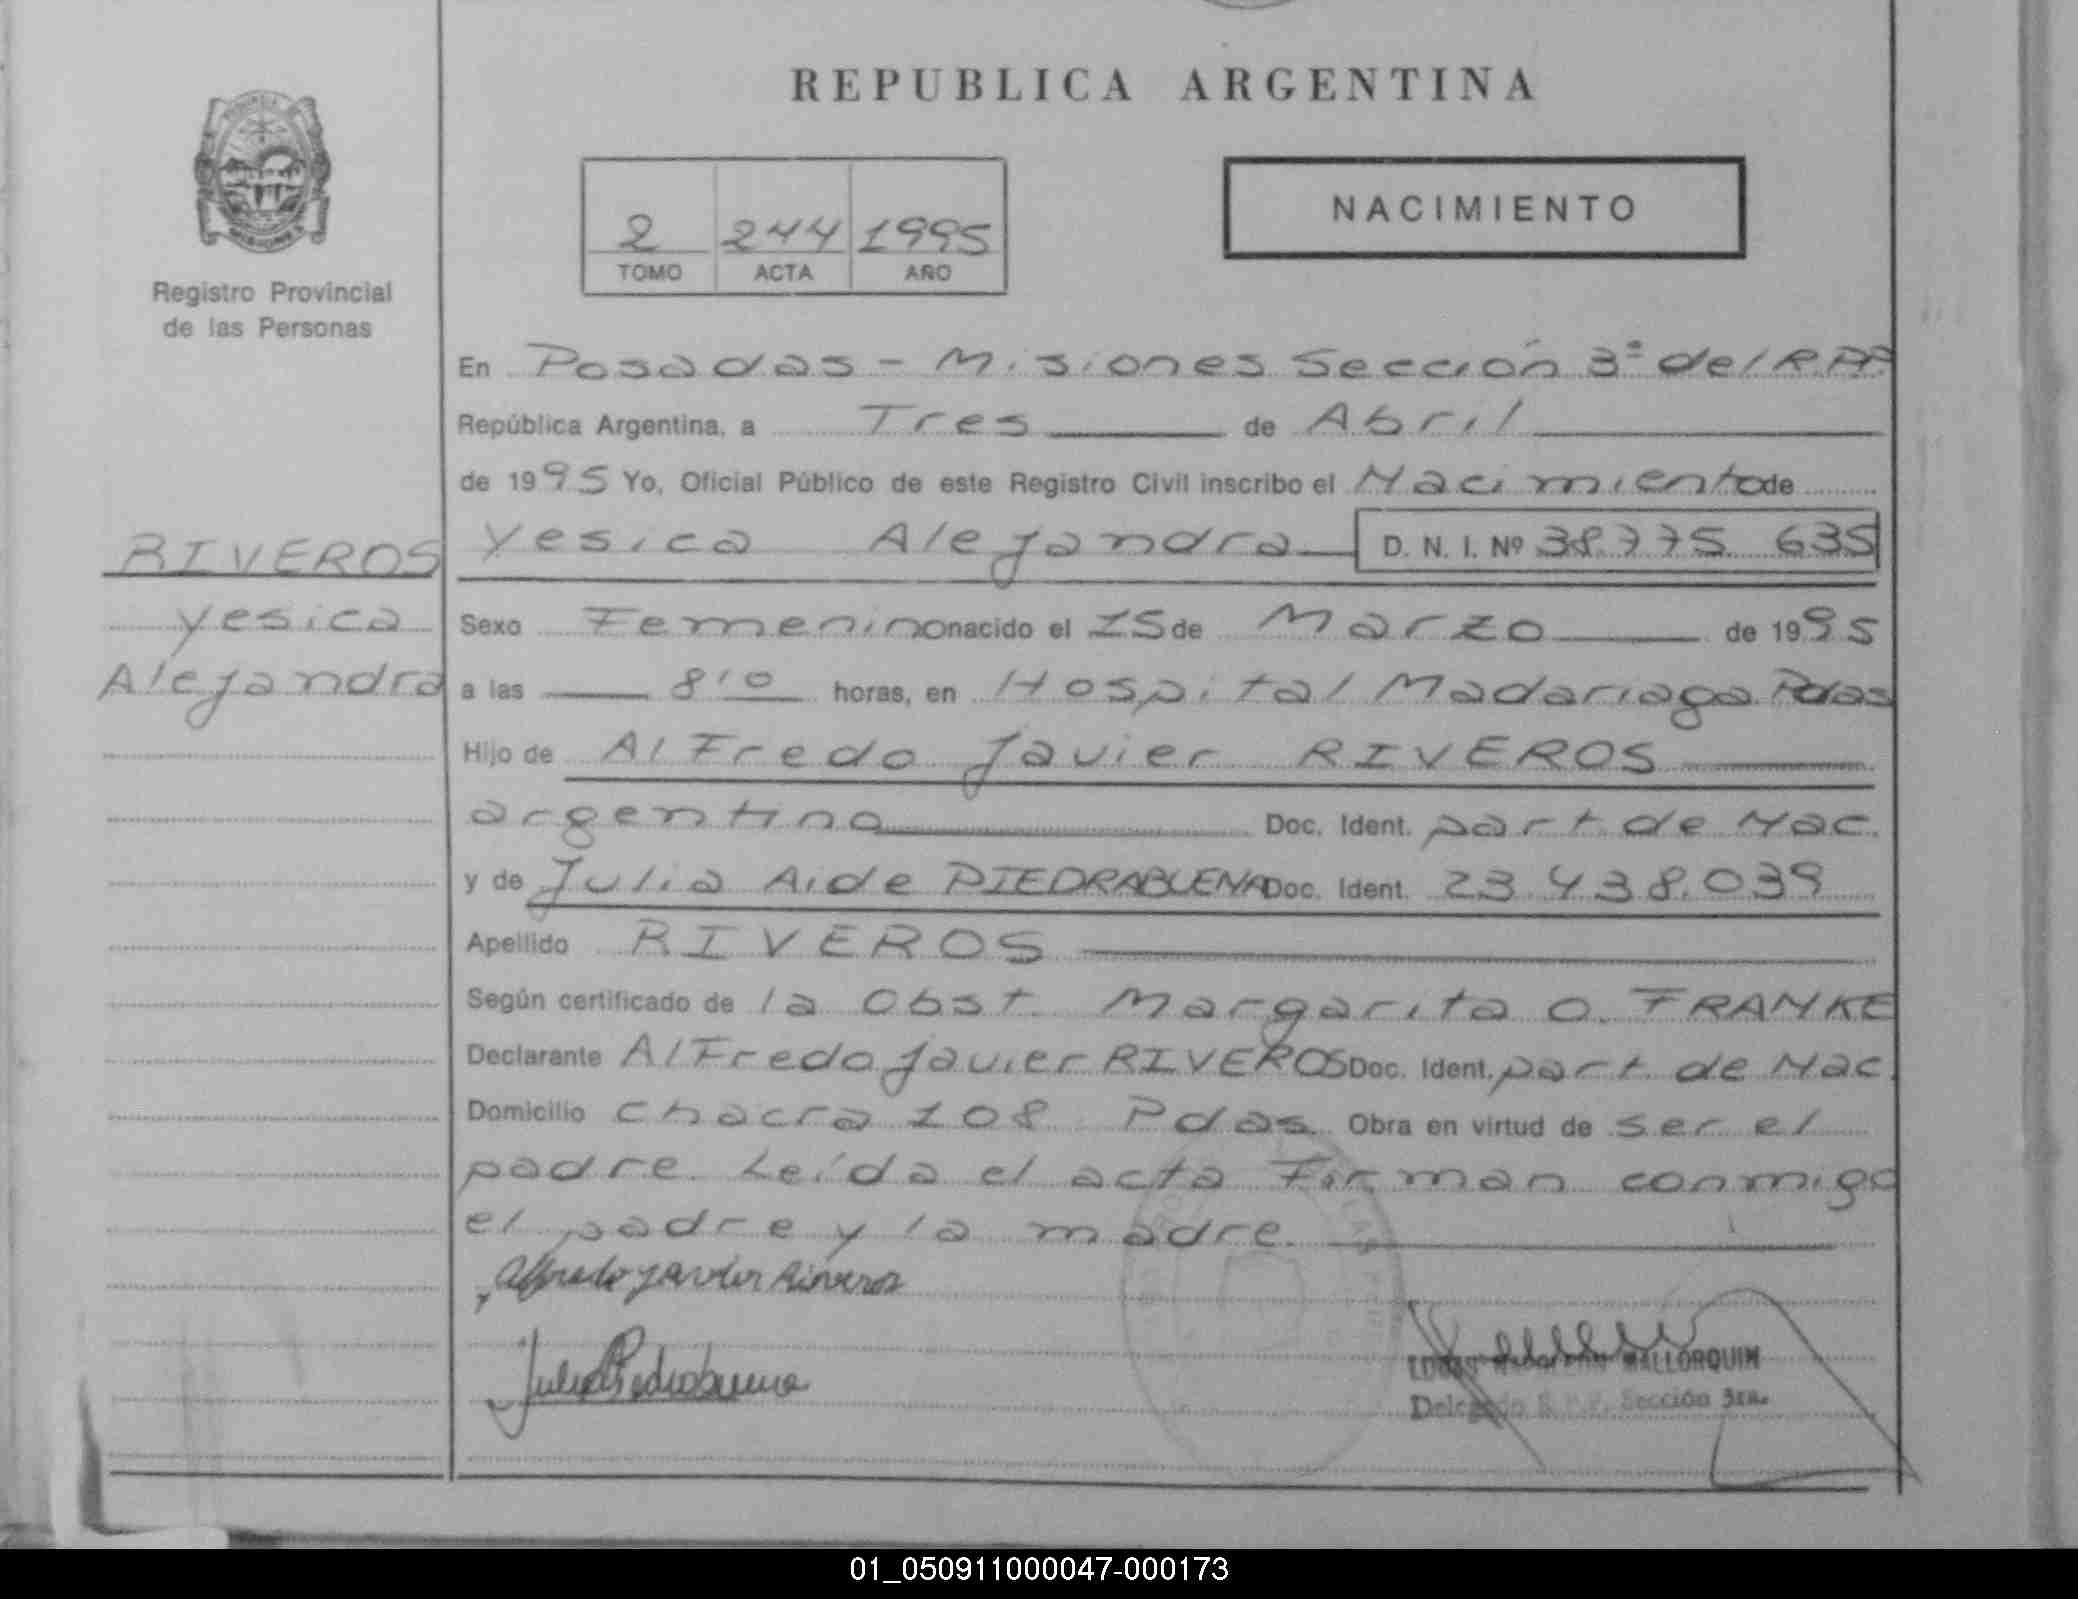 REPUBLICA ARGENTINA
NACIMIENTO
2 244 1995
TOMO ACTA AÑO
Registro Provincial
de las Personas
RIVEROS
Yesica
Alejandra
En Posadas - Misiones Sección 3ª del R.P.P.
República Argentina, a Tres de Abril
de 1995 Yo, Oficial Público de este Registro Civil inscribo el Nacimiento de
Yesica Alejandra D. N. I. Nº 38.775.635
Sexo Femenino nacido el 15 de Marzo de 1995
a las 8'0 horas, en Hospital Madariaga Pdas
Hijo de Alfredo Javier RIVEROS
argentino Doc. Ident. part. de Nac.
y de Julia Aide PIEDRABUENA Doc. Ident. 23.438.039
Apellido RIVEROS
Según certificado de la Obst. Margarita O. FRANKE
Declarante Alfredo Javier RIVEROS Doc. Ident. part. de Nac.
Domicilio Chacra 108 Pdas. Obra en virtud de ser el
padre. Leída el acta Firman conmigo
el padre y la madre.
Alfredo Javier Riveros
Julia Piedrabuena
MALLORQUIN
Delegado R.P.P. Sección 3ra.
01_050911000047-000173